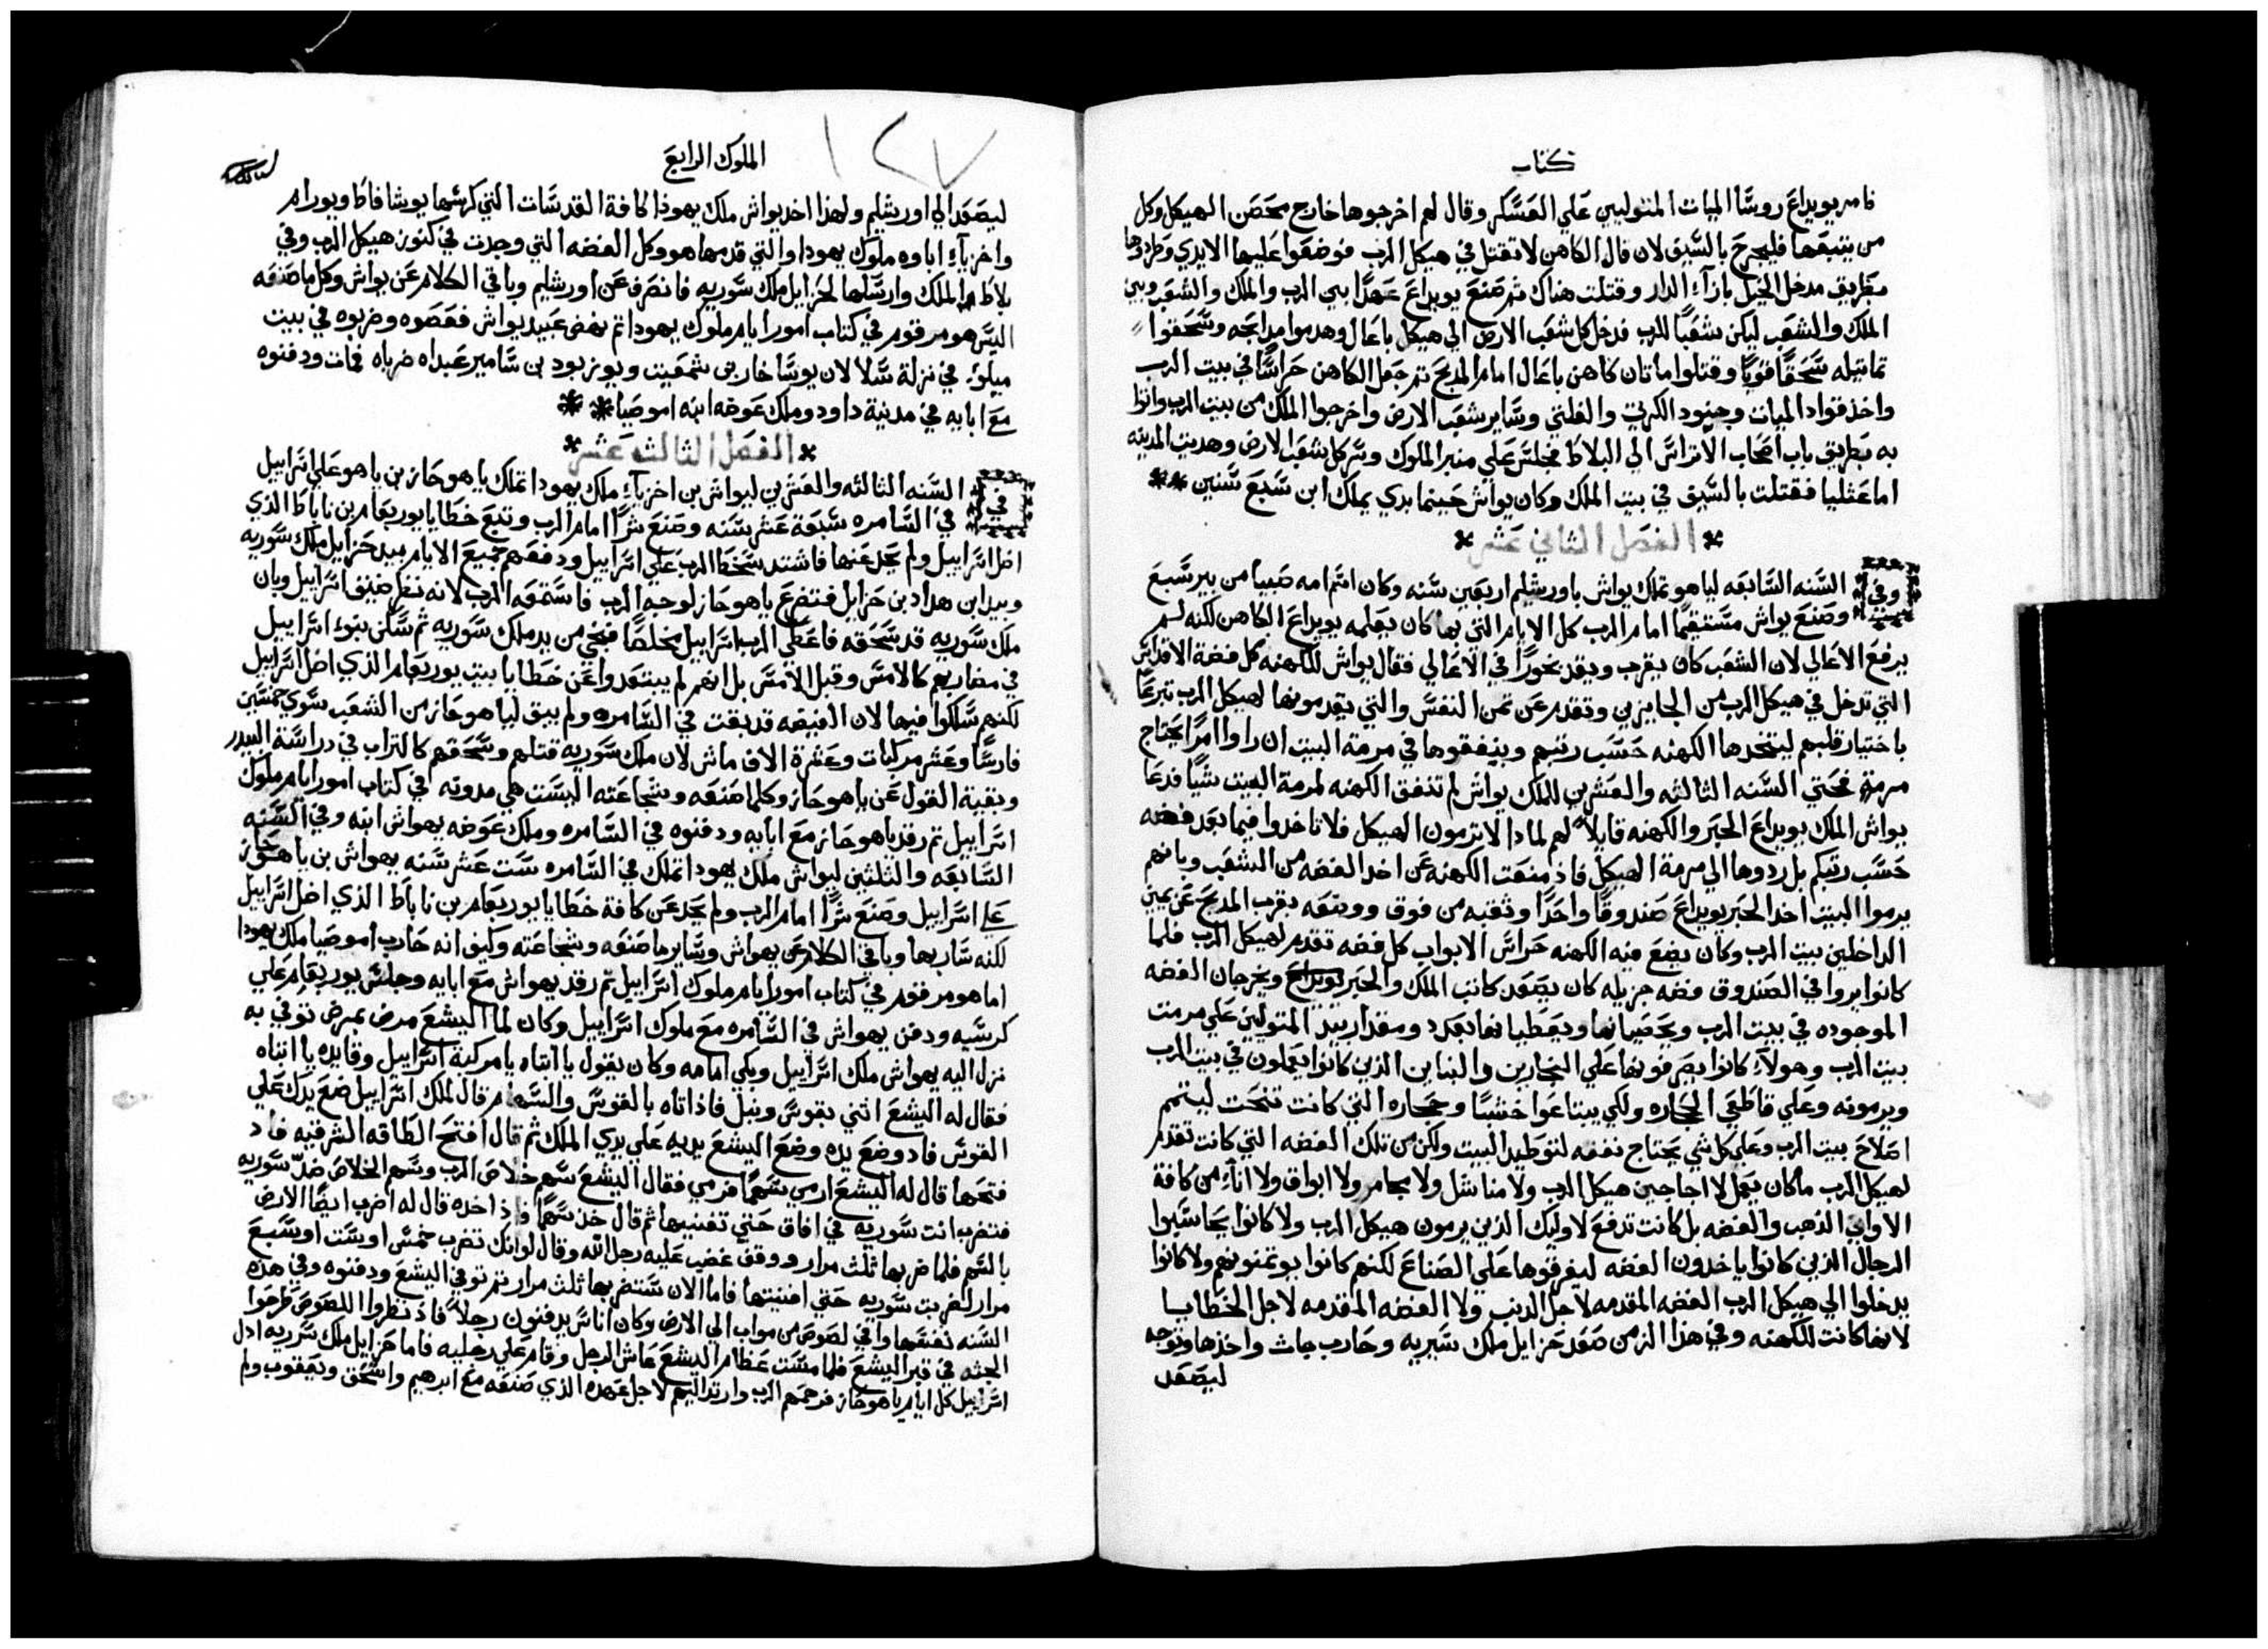 كتاب
فامر يويداع روسا الميات المتوليين علي العسكر وقال لهم اخرجوها خارج محصن الهيكل وكل
من يتبعها فليجرح بالسيف لان قال الكاهن لا تقتل في هيكل الرب فوضعوا عليها الايدي وطردوها
بطريق مدخل الخيل بازآء الدار وقتلت هناك ثم صنع يويداع عهدا بين الرب والملك والشعب وبين
الملك والشعب ليكن شعبا للرب فدخل كل شعب الارض الي هيكل باعال وهدموا مدابحه وسحقوا
تماتيله سحقا قويا وقتلوا ماتان كاهن باعال امام المدبح ثم جعل الكاهن حراسا في بيت الرب
واخذ قواد الميات وجنود الكريتي والفلتي وساير شعب الارض واخرجوا الملك من بيت الرب واتوا
به بطريق باب اصحاب الاتراس الي البلاط فجلس علي منبر الملوك وسر كل شعب الارض وهديت المدينه
اما عثليا فقتلت بالسيف في بيت الملك وكان يواش حينما بدي يملك ابن سبع سنين
الفصل الثاني عشر
وفي السنه السابعه لياهو تملك يواش باورشليم اربعين سنه وكان اسم امه صبيا من بير سبع
وصنع يواش مستقيما امام الرب كل الايام التي بها كان يعلمه يويداع الكاهن لكنه لم
يرفع الاعالي لان الشعب كان يقرب ويقد بخورا في الاعالي فقال يواش للكهنه كل فضة الاقداس
التي تدخل في هيكل الرب من الجايزين وتقدم عن تمن النفس والتي يقدمونها لهيكل الرب تبرعا
باختيار قلبهم ليتخدها الكهنه حسب رتبهم وينفقوها في مرمة البيت ان راوا امرا يحتاج
مرمة فحتي السنه الثالثه والعشرين للملك يواش لم تنفق الكهنه لمرمة البيت شيا فدعا
يواش الملك يويداع الحبر والكهنه قايلا لهم لمادا لا ترمون الهيكل فلا تاخدوا فيما بعد فضه
حسب رتبكم بل ردوها الي مرمة الهيكل فاذ منعت الكهنه عن اخد الفضه من الشعب وبانهم
يرموا البيت اخد الحبر يويداع صندوقا واحدا وثقبه من فوق ووضعه بقرب المدبح عن يمين
الداخلين بيت الرب وكان يضع فيه الكهنه حراس الابواب كل فضه تقدم لهيكل الرب فلما
كانوا يروا في الصندوق فضه جزيله كان يصعد كاتب الملك والحبر يويداع ويخرجان الفضه
الموجوده في بيت الرب ويحصيانها ويعطيانها بعدد ومقدار بيد المتوليين علي مرمت
بيت الرب وهولآء كانوا يصرفونها علي النجارين والبنايين الذين كانوا يعملون في بيت الرب
ويرمونه وعلي قاطعي الحجاره ولكي يبتاعوا خشبا وحجاره التي كانت تنحت ليتمم
اصلاح بيت الرب وعلي كل شي يحتاج نفقه لتوطيد البيت ولكن من تلك الفضه التي كانت تقدم
لهيكل الرب ما كان يعمل لا اجاجين هيكل الرب ولا مناشل ولا مجامر ولا ابواق ولا انآء من كافة
الاواني الذهب والفضه بل كانت تدفع لاوليك الذين يرمون هيكل الرب ولا كانوا يحاسبوا
الرجال الذين كانوا ياخدون الفضه ليفرقوها علي الصناع لكنهم كانوا يوتمنونهم ولا كانوا
يدخلوا الي هيكل الرب الفضه المقدمه لاجل الدنب ولا الفضه المقدمه لاجل الخطايا
لانها كانت للكهنه وفي هذا الزمن صعد حزايل ملك سيريه وحارب جات واخذها وتوجه
ليصعد
الملوك الرابع
١٢٧
ليصعد الي اورشليم ولهذا اخد يواش ملك يهودا كافة القدسات التي كرسها يوشافاط ويورام
واخزيآء اباوه ملوك يهودا والتي قدمها هو وكل الفضه التي وجدت في كنوز هيكل الرب وفي
بلاط الملك وارسلها لحزايل ملك سوريه فانصرف عن اورشليم وباقي الكلام عن يواش وكل ما صنعه
اليس هو مرقوم في كتاب امور ايام ملوك يهودا ثم نهض عبيد يواش فعصوه وضربوه في بيت
ميلوء في نزلة سلا لان يوساخار بن شمعيت ويوزبود بن سامير عبداه ضرباه فمات ودفنوه
مع ابايه في مدينة داود وملك عوضه ابنه اموصيا
الفصل الثالث عشر
في السنه الثالثه والعشرين ليواش بن اخزيآء ملك يهودا تملك ياهوحاز بن ياهو علي اسراييل
في السامره سبعة عشر سنه وصنع شرا امام الرب وتبع خطايا يوربعام بن ناباط الذي
اضل اسراييل ولم يحد عنها فاشتد سخط الرب علي اسراييل ودفعهم جميع الايام بيد حزايل ملك سوريه
وبيد ابن هداد بن حزايل فتضرع ياهوحاز لوجه الرب فاستمعه الرب لانه نظر ضيق اسراييل وبان
ملك سوريه قد سحقه فاعطي الرب اسراييل مخلصا فنجي من يد ملك سوريه ثم سكن بنوء اسراييل
في مضاربهم كالامس وقبل الامس بل انهم لم يبتعدوا عن خطايا بيت يوربعام الذي اضل اسراييل
لكنهم سلكوا فيها لان الغيضه قد بقت في السامره ولم يبق لياهوحاز من الشعب سوي خمسين
فارسا وعشر مركبات وعشرة الاف ماش لان ملك سوريه قتلهم وسحقهم كالتراب في دراسة البيدر
وبقية القول عن ياهوحاز وكلما صنعه وشجاعته اليست هي مدونه في كتاب امور ايام ملوك
اسراييل ثم رقد ياهوحاز مع ابايه ودفنوه في السامره وملك عوضه يهواش ابنه وفي السنه
السابعه والثلثين ليواش ملك يهودا تملك في السامره ست عشر سنه يهواش بن ياهوحاز
علي اسراييل وصنع شرا امام الرب ولم يحد عن كافة خطايا يوربعام بن ناباط الذي اضل اسراييل
لكنه سار بها وباقي الكلام عن يهواش وساير ما صنعه وشجاعته وكيف انه حارب اموصيا ملك يهودا
اما هو مرقوم في كتاب امور ايام ملوك اسراييل ثم رقد يهواش مع ابايه وجلس يوربعام علي
كرسيه ودفن يهواش في السامره مع ملوك اسراييل وكان لما اليشع مرض بمرض توفي به
نزل اليه يهواش ملك اسراييل وبكي امامه وكان يقول يا ابتاه يا مركبة اسراييل وقايده يا ابتاه
فقال له اليشع اتني بقوس ونبل فاذ اتاه بالقوس والسهام قال لملك اسراييل ضع يدك علي
القوس فاد وضع يده وضع اليشع يديه علي يدي الملك ثم قال افتح الطاقه الشرقيه فاد
فتحها قال له اليشع ارمي سهما فرمي فقال اليشع سهم خلاص الرب وسهم الخلاص ضد سوريه
فتضرب انت سوريه في افاق حتي تفنيها ثم قال خذ سهما فاذ اخده قال له اضرب ايضا الارض
بالسهم فلما ضربها ثلث مرار ووقف غضب عليه رجل الله وقال لو انك تضرب خمس او ست او سبع
مرار لضربت سوريه حتي افنيتها فاما الان ستضربها ثلث مرار ثم توفي اليشع ودفنوه وفي هذه
السنه نفسها وافي لصوص من مواب الي الارض وكان اناس يدفنون رجلا فاذ نظروا اللصوص طرحوا
الجثه في قبر اليشع فلما مست عظام اليشع عاش الرجل وقام علي رجليه فاما حزايل ملك سوريه ادل
اسراييل كل ايام ياهوحاز فرحمهم الرب وارتد اليهم لاجل عهده الذي صنعه مع ابرهيم واسحق ويعقوب ولم